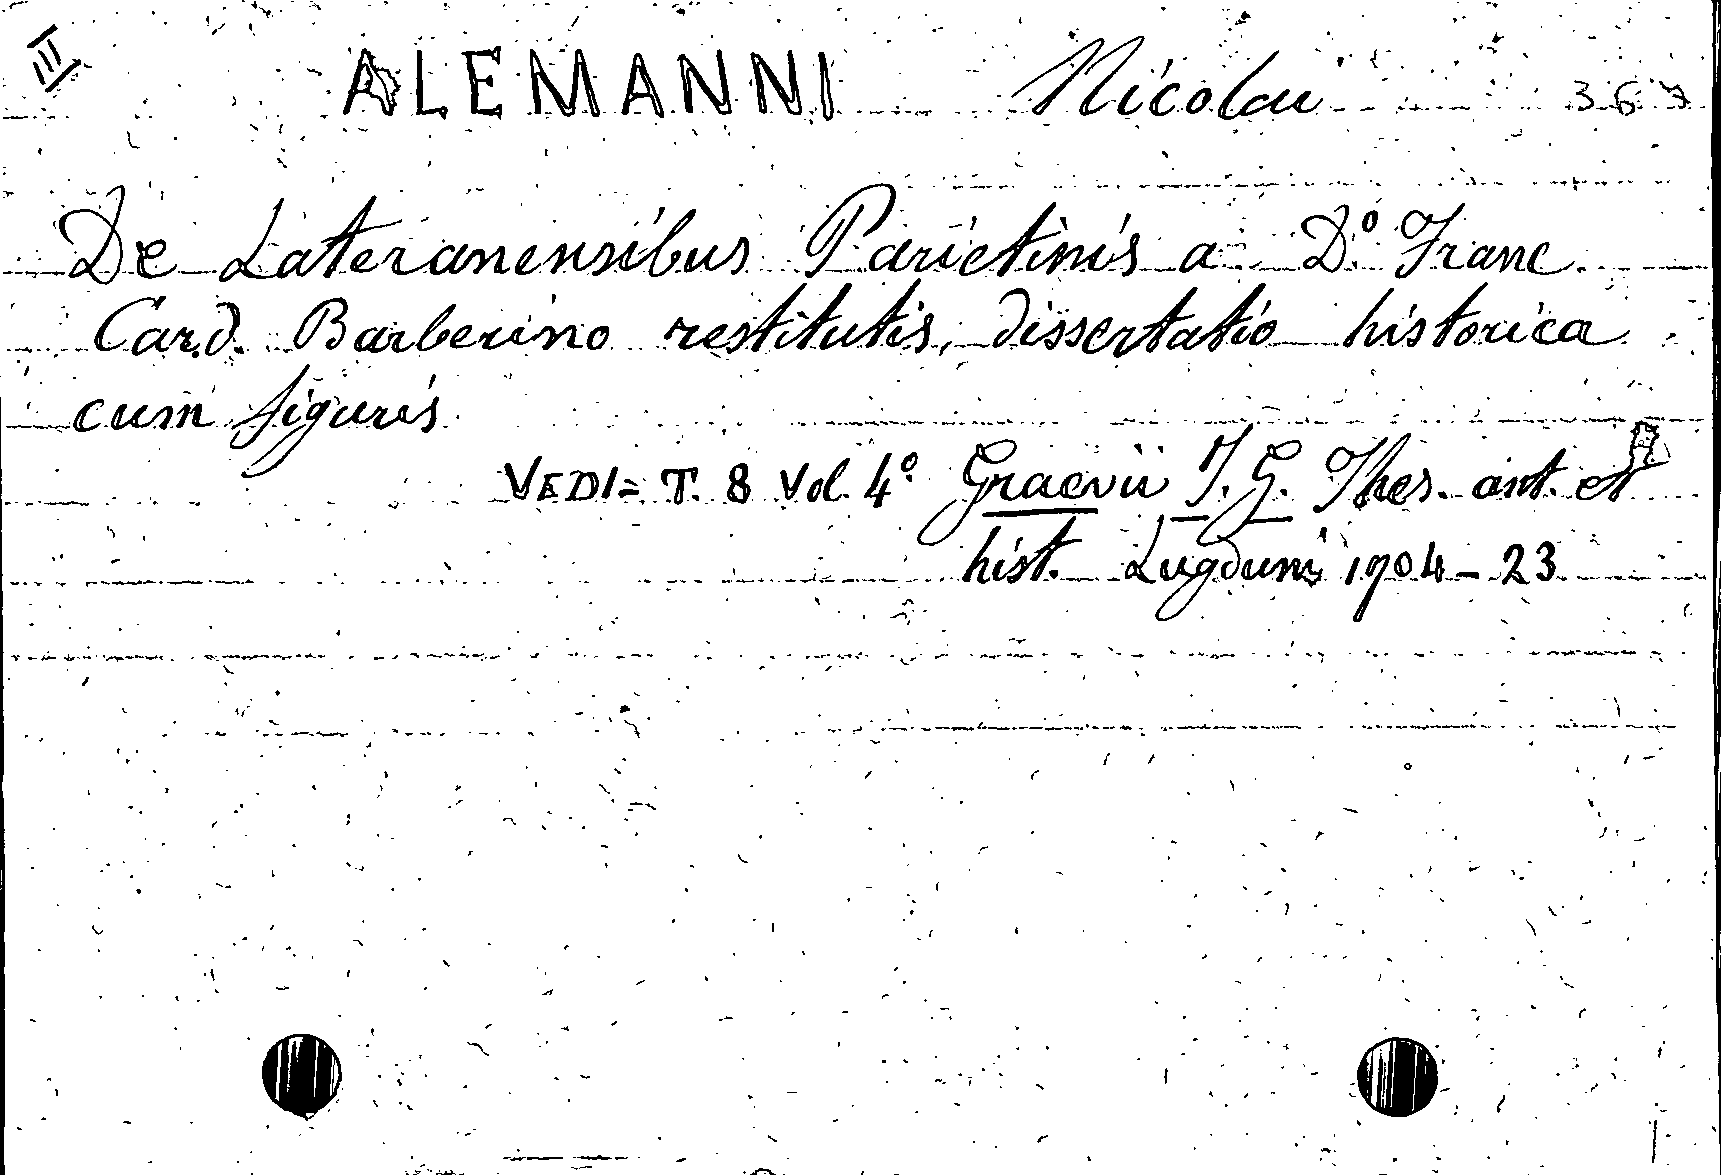 III ALEMANNI Nicolai 367
De Lateranensibus Parietinis a D.º Franc
Card. Barberino restitutis, dissertatio historica
cum figuris
VEDI= T. 8 Vol. 4º Graevii J. G. Thes. ant. et
hist. Lugduni 1704-23